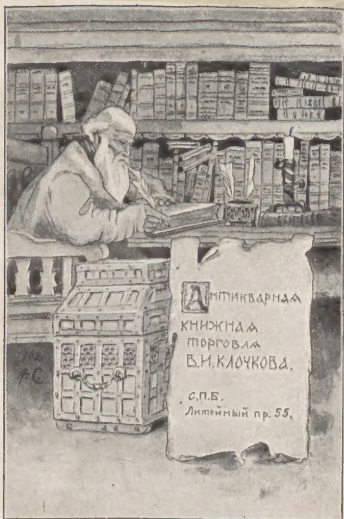 Антикварная
книжная
торговля
В.И.КЛОЧКОВА.
С.П.Б.
Литейный пр. 55.